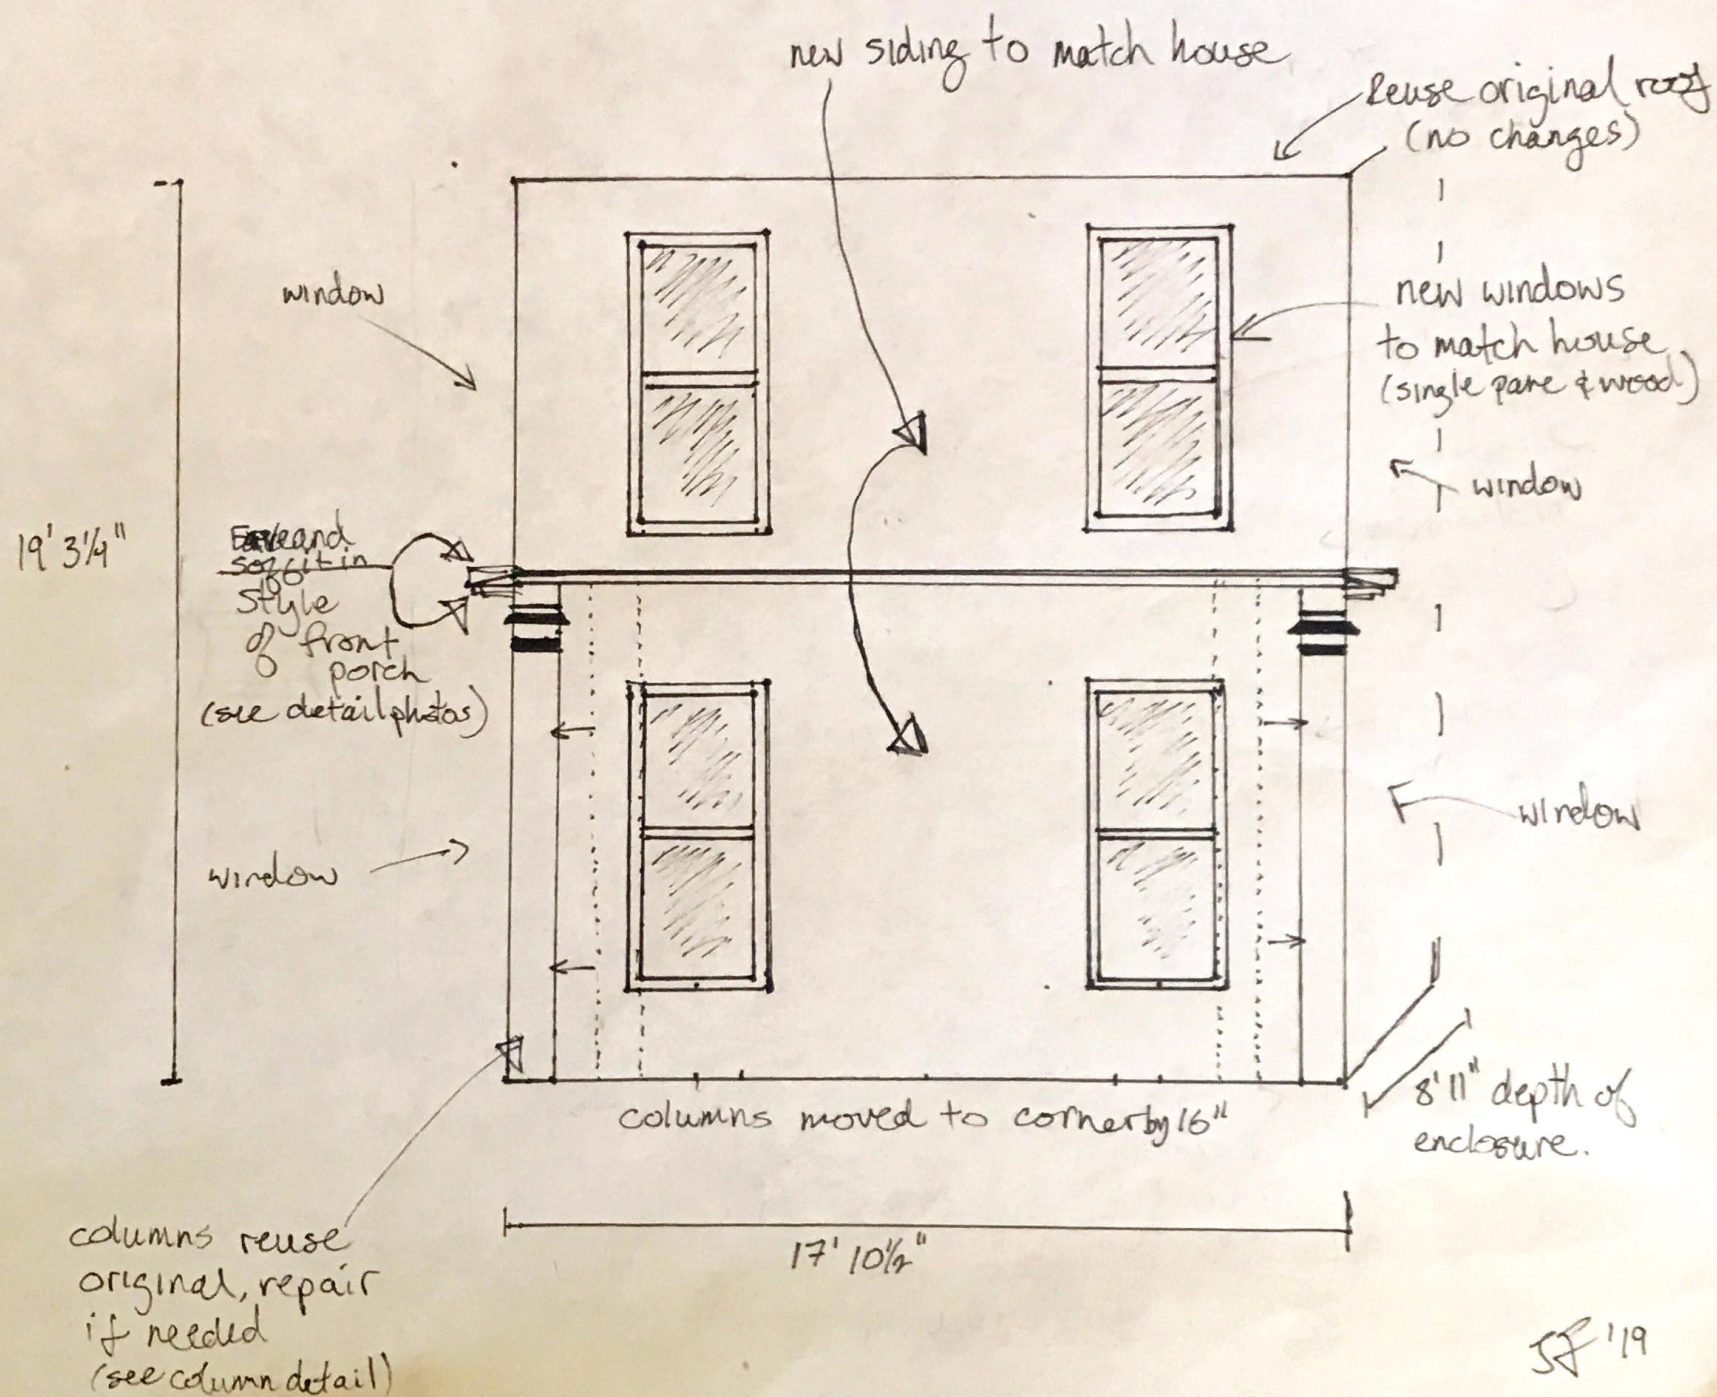 new siding to match house
Reuse original roof
(no changes)
window
new windows
to match house
(single pane & wood)
window
19' 3 1/4"
Eave and
soffit in
style
of front
porch
(see detail photos)
window
window
columns moved to corner by 16"
8' 11" depth of
enclosure.
17' 10 1/2"
columns reuse
original, repair
if needed
(see column detail)
JF '19